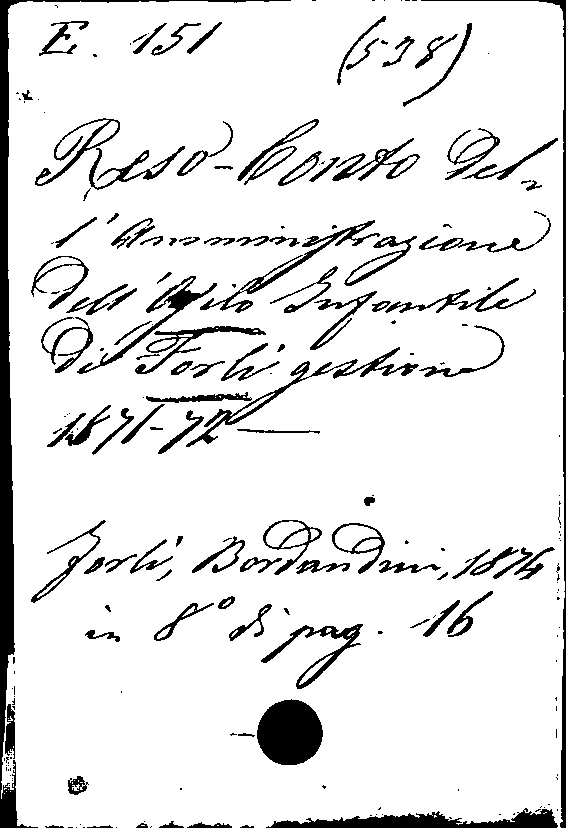 E. 151 (538)
Reso-Conto del-
l'Amministrazione
dell'Asilo Infantile
di Forlì gestione
1871-72 —
Forlì, Bordandini, 1874
in 8° di pag. 16